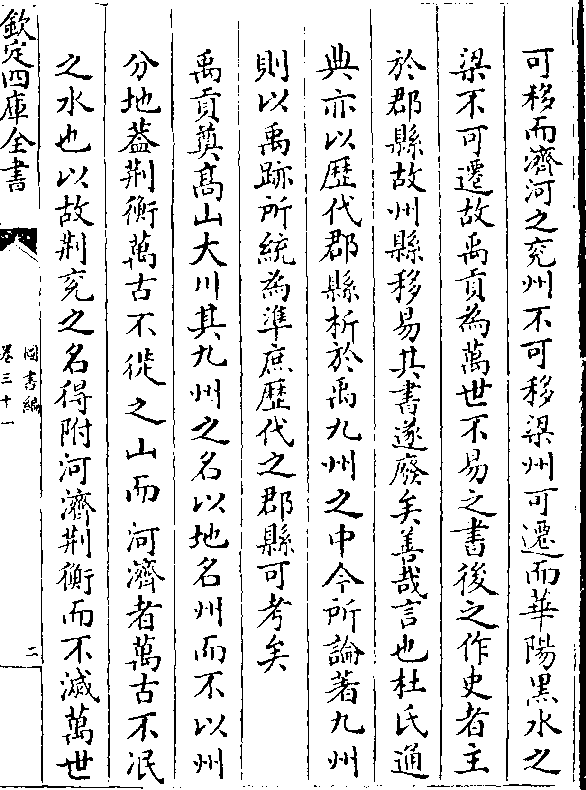 可移而濟河之兖州不可移梁州可遷而華陽黒水之
梁不可遷故禹貢為萬世不易之書後之作史者主
於郡縣故州縣移易其書遂廢矣善哉言也杜氏通
典亦以歴代郡縣析於禹九州之中今所論著九州
則以禹跡所統為準庶歴代之郡縣可考矣
禹貢奠髙山大川其九州之名以地名州而不以州
分地葢荆衡萬古不徙之山而河濟者萬古不泯
之水也以故荆兖之名得附河濟荆衡而不滅萬世
欽定四庫全書
圖書編
卷三十一
二